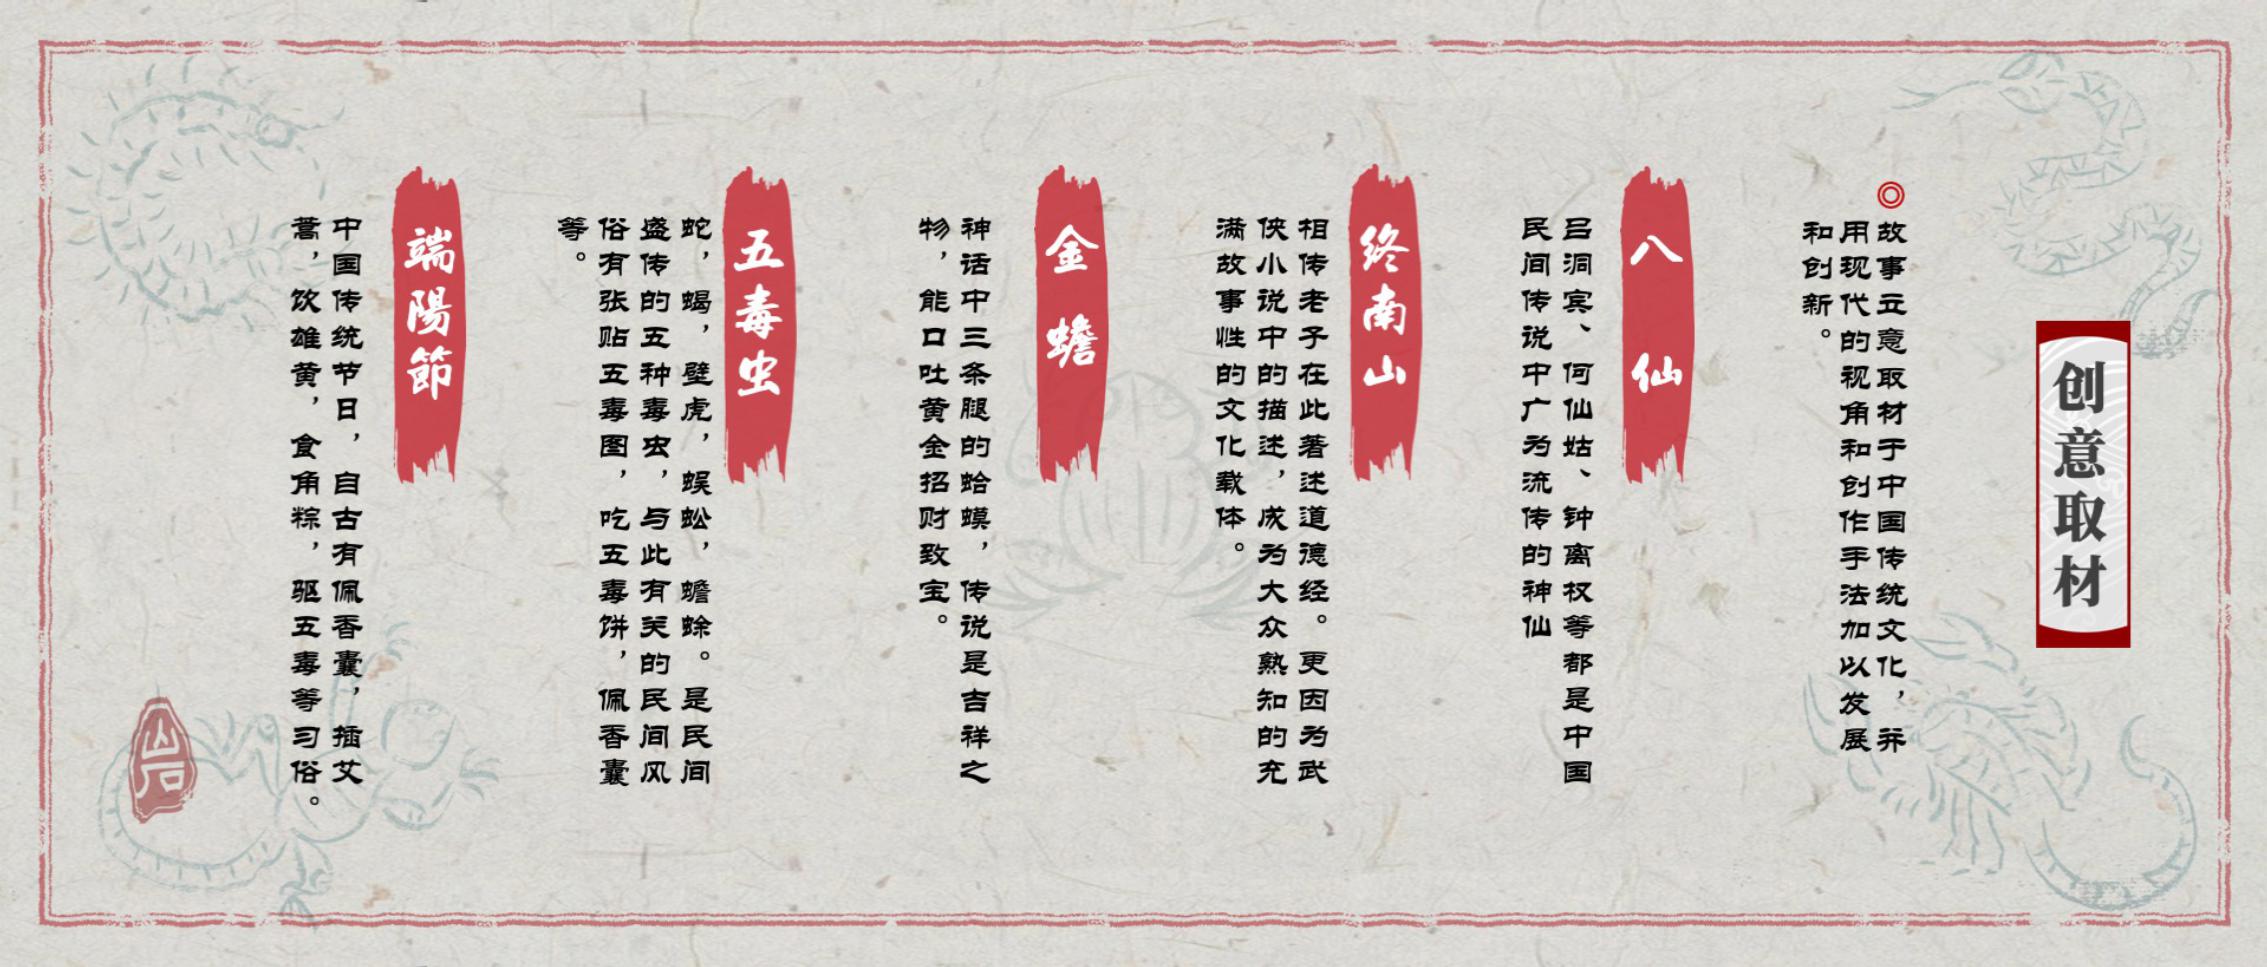 创意取材
故事立意取材于中国传统文化，并
用现代的视角和创作手法加以发展
和创新。
八仙
吕洞宾、何仙姑、钟离权等都是中国
民间传说中广为流传的神仙
终南山
相传老子在此著述道德经。更因为武
侠小说中的描述，成为大众熟知的充
满故事性的文化载体。
金蟾
神话中三条腿的蛤蟆，传说是吉祥之
物，能口吐黄金招财致宝。
五毒虫
蛇，蝎，壁虎，蜈蚣，蟾蜍。是民间
盛传的五种毒虫，与此有关的民间风
俗有张贴五毒图，吃五毒饼，佩香囊
等。
端陽節
中国传统节日，自古有佩香囊，插艾
蒿，饮雄黄，食角粽，驱五毒等习俗。